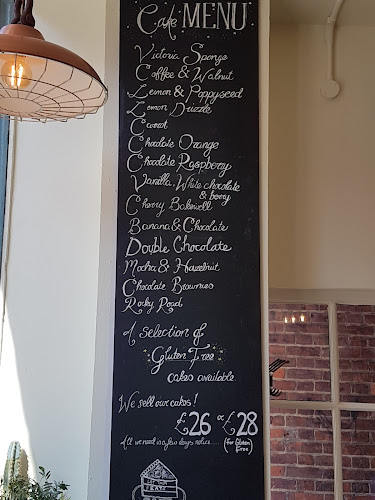 Cake MENU
Victoria Sponge
Coffee & Walnut
Lemon & Poppyseed
Lemon Drizzle
Carrot
Chocolate Orange
Chocolate Raspberry
Vanilla, White chocolate
& berry
Cherry Bakewell
Banana & Chocolate
Double Chocolate
Mocha & Hazelnut
Chocolate Brownies
Rocky Road
A selection of
Gluten Free
cakes available
We sell our cakes!
£26 or £28
All we need is a few days notice..... (for Gluten
Free)